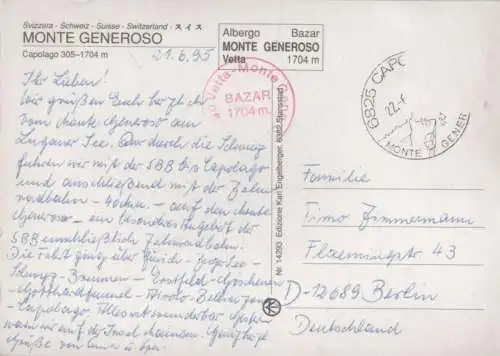 Svizzera - Schweiz - Suisse - Switzerland - スイス
MONTE GENEROSO
Capolago 305-1704 m
21.6.95
Albergo Bazar
MONTE GENEROSO
Vetta 1704 m
Vetta-Monte
BAZAR
1704 m.
6825 CAPO
MONTE GENER
Ihr Lieben!
Wir grüßen Euch herzlich
vom Monte Generoso am
Luganer See. Quer durch die Schweiz
fuhren wir mit der SBB bis Capolago
und anschließend mit der Zahn
radbahn - 40 km - auf den Monte
Generoso - ein besonderes Angebot der
SBB einschließlich Zahnradbahn!
Die Fahrt ging über Zürich -
- Brunnen - Erstfeld - Göschenen
- Gotthardtunnel - Airolo - Bellinzona
- Capolago. Alles wunderbar. Gestern
waren wir auf der Insel Mainau.
Grüße von
Nr. 14293 Edizione Karl Engelberger, 6362 Stansstad
Familie
Timo Zimmermann
Flämingstr 43
D-12689 Berlin
Deutschland